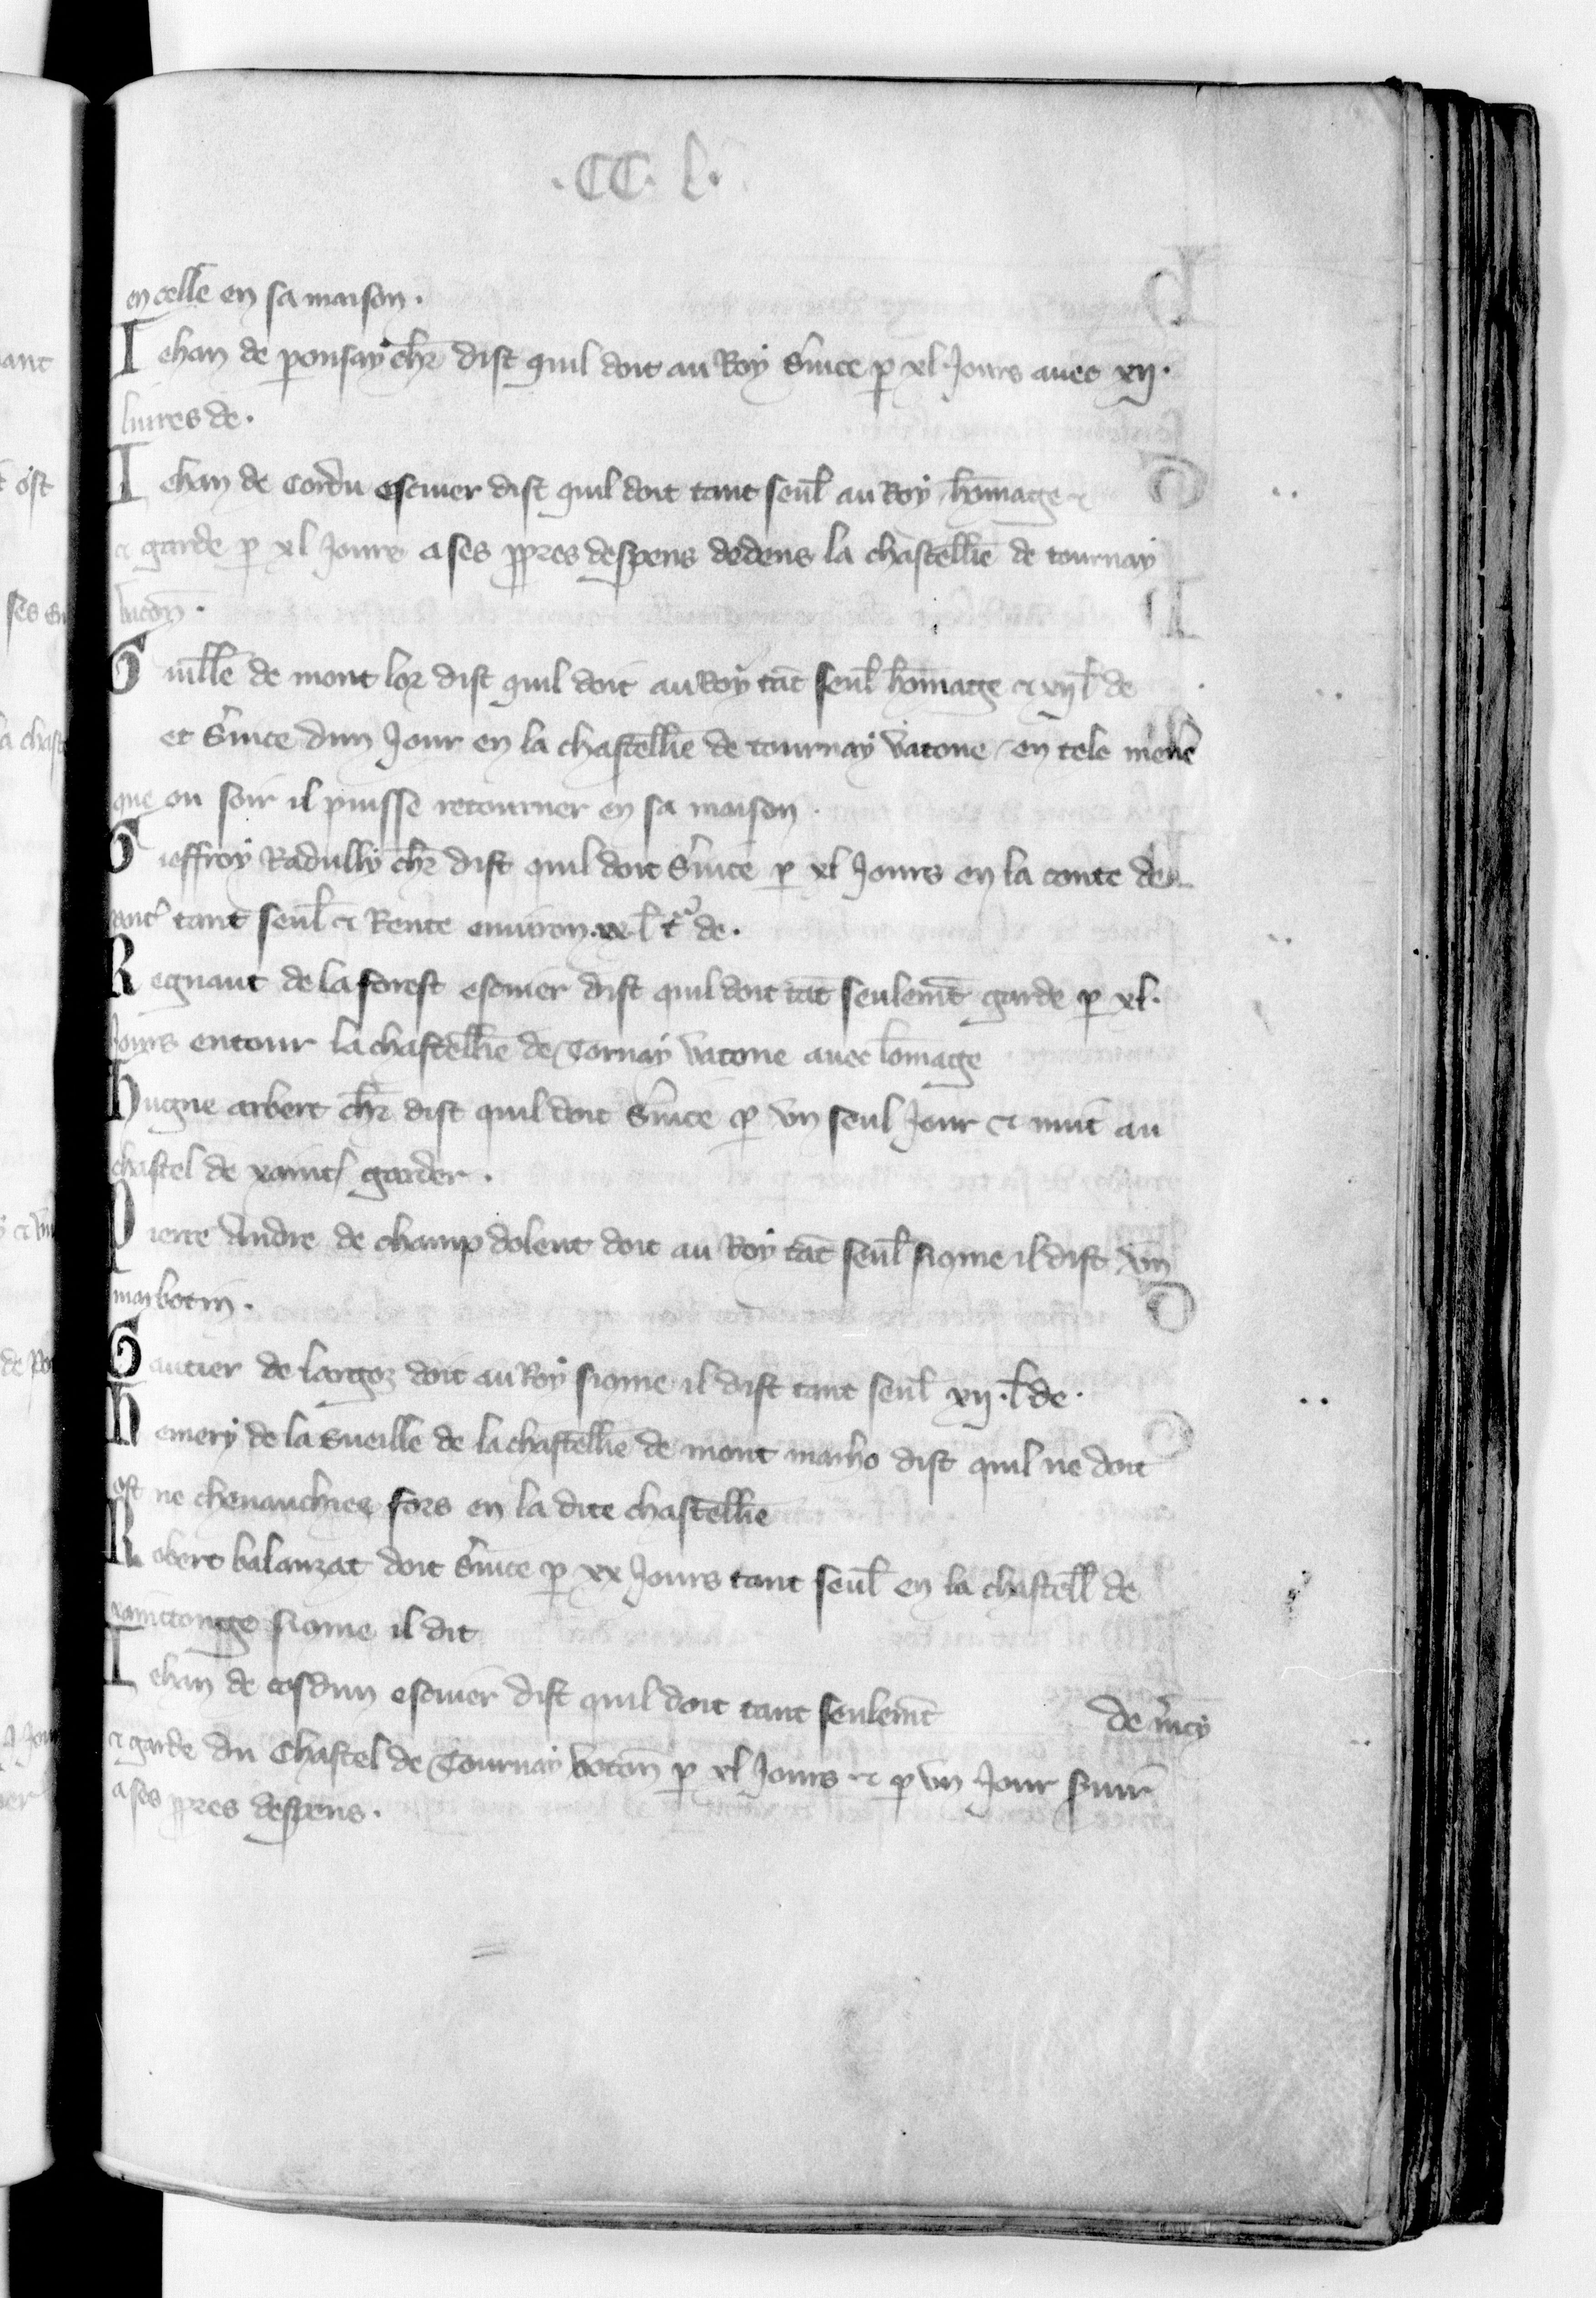 .CC. l.
en celle en sa maison.
Iehan de ponsay chr̄ dist quil doit au Roy s̄uice p xl. Jours auec xij.
liures de.
Iehan de Cordu escuier dist quil doit tant seul̄ au Roy hōmage &
& garde p xl Jours a ses ppres despens dedens la chastell̄ie de tournay
vtcon̄.
Guill̄e de mont lor dist quil doit au Roy tāt seul̄ hōmage & xij l̄ de
et s̄uice dun Jour en la chastell̄ie de tournay vatone en tele men̄e
que ou soir il puisse retourner en sa maison.
Gieffroy Radully chr̄ dist quil doit s̄uice p xl Jours en la conte de
tant seul̄ & Rente enuiron xx l̄ de.
Regnaut de la forest escuier dist quil doit tāt seulemt̄ garde p xl.
Jours entour la chastell̄ie de Tornay vatone auec lomage
Hugue arbert chr̄ dist quil doit s̄uice p vn seul Jour & nuit au
chastel de xaint garder.
Pierre Andre de champ dolent doit au Roy tāt seul̄ sicome il dist vn
marbotin.
Gautier de largoz doit au Roy sicome il dist tant seul̄ xij. l̄ de.
Hemery de la sueille de la chastell̄ie de mont marho dist quil ne doit
ost ne cheuauchiee fors en la dite chastell̄ie
Robert balanzat doit s̄uice p xx Jours tant seul̄ en la chastell̄ de
xainctonge sicome il dit
Iehan de cosdun escuier dist quil doit tant seulemt̄
& garde du Chastel de Tournay voton̄ p xl Jours & p vn Jour
a ses ppres despens.